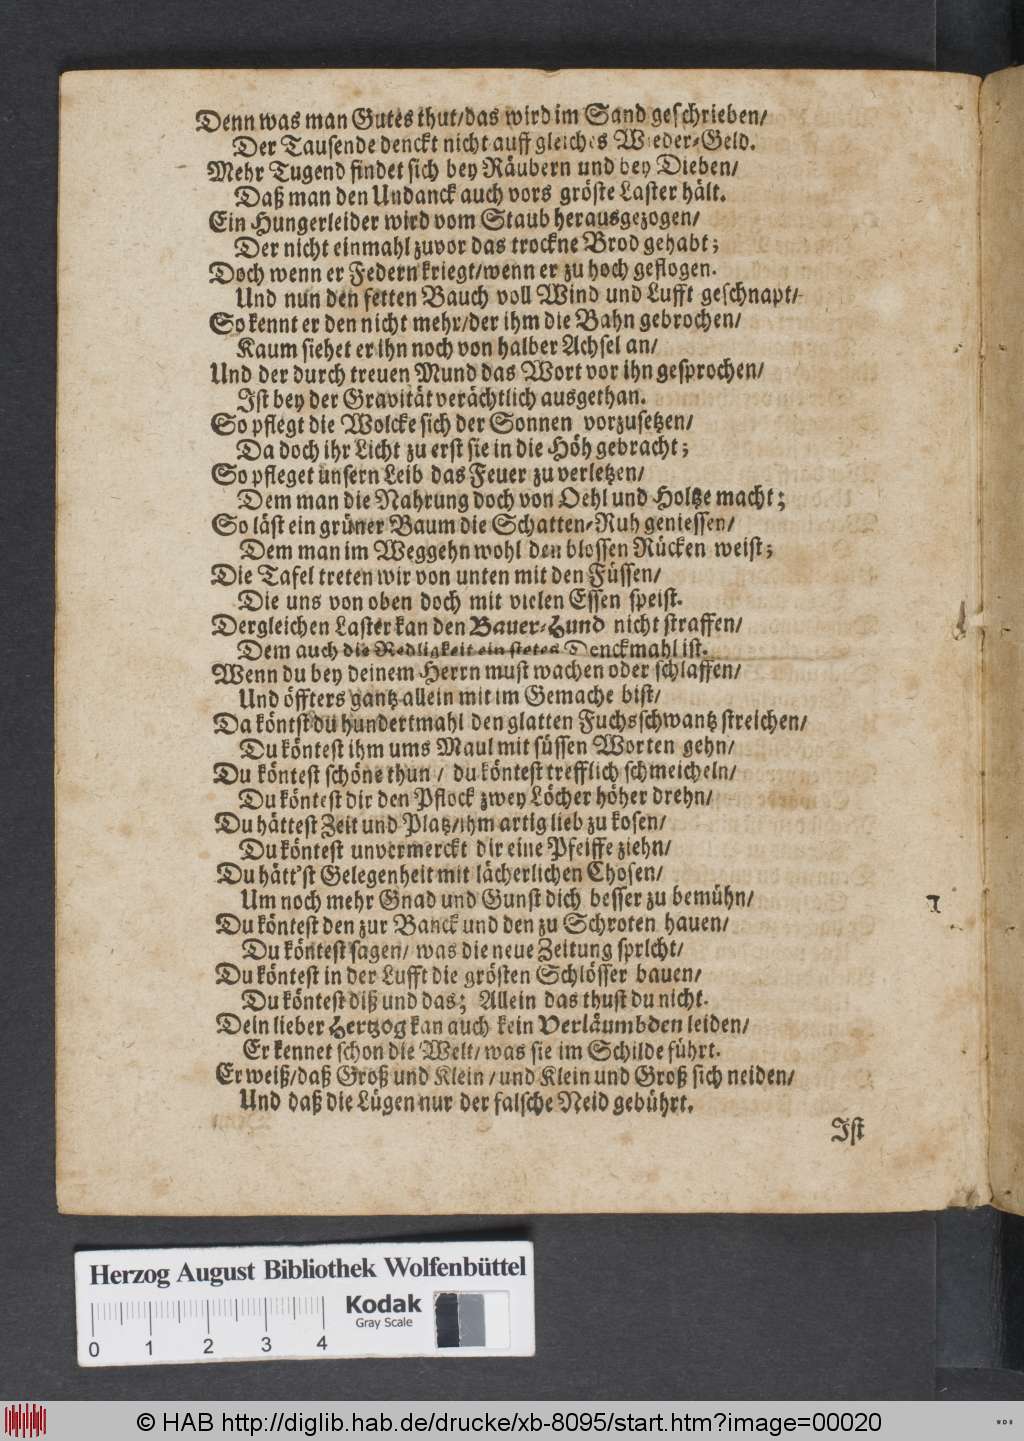 Denn was man Gutes thut/das wird im Sand geschrieben/
Der Tausende denckt nicht auff gleiches Wieder-Geld.
Mehr Tugend findet sich bey Räubern und bey Dieben/
Daß man den Undanck auch vors gröste Laster hält.
Ein Hungerleider wird vom Staub herausgezogen/
Der nicht einmahl zuvor das trockne Brod gehabt;
Doch wenn er Federn kriegt/wenn er zu hoch geflogen.
Und nun den fetten Bauch voll Wind und Lufft geschnapt/
So kennt er den nicht mehr/der ihm die Bahn gebrochen/
Kaum siehet er ihn noch von halber Achsel an/
Und der durch treuen Mund das Wort vor ihn gesprochen/
Ist bey der Gravität verächtlich ausgethan.
So pflegt die Wolcke sich der Sonnen vorzusetzen/
Da doch ihr Licht zu erst sie in die Höh gebracht;
So pfleget unsern Leib das Feuer zu verletzen/
Dem man die Nahrung doch von Oehl und Holtze macht;
So läst ein grüner Baum die Schatten-Ruh geniessen/
Dem man im Weggehn wohl den blossen Rücken weist;
Die Tafel treten wir von unten mit den Füssen/
Die uns von oben doch mit vielen Essen speist.
Dergleichen Laster kan den Bauer-Hund nicht straffen/
Dem auch die Redligkeit ein stetes Denckmahl ist.
Wenn du bey deinem Herrn must wachen oder schlaffen/
Und öffters gantz allein mit im Gemache bist/
Da köntst du hundertmahl den glatten Fuchsschwantz streichen/
Du köntest ihm ums Maul mit süssen Worten gehn/
Du köntest schöne thun / du köntest trefflich schmeicheln/
Du köntest dir den Pflock zwey Löcher höher drehn/
Du hättest Zeit und Platz/ihm artig lieb zu kosen/
Du köntest unvermerckt dir eine Pfeiffe ziehn/
Du hätt'st Gelegenheit mit lächerlichen Chosen/
Um noch mehr Gnad und Gunst dich besser zu bemühn/
Du köntest den zur Banck und den zu Schroten hauen/
Du köntest sagen/ was die neue Zeitung spricht/
Du köntest in der Lufft die grösten Schlösser bauen/
Du köntest diß und das; Allein das thust du nicht.
Dein lieber Hertzog kan auch kein Verläumbden leiden/
Er kennet schon die Welt/ was sie im Schilde führt.
Er weiß/daß Groß und Klein /und Klein und Groß sich neiden/
Und daß die Lügen nur der falsche Neid gebührt.
Ist
Herzog August Bibliothek Wolfenbüttel
Kodak
Gray Scale
0 1 2 3 4
© HAB http://diglib.hab.de/drucke/xb-8095/start.htm?image=00020